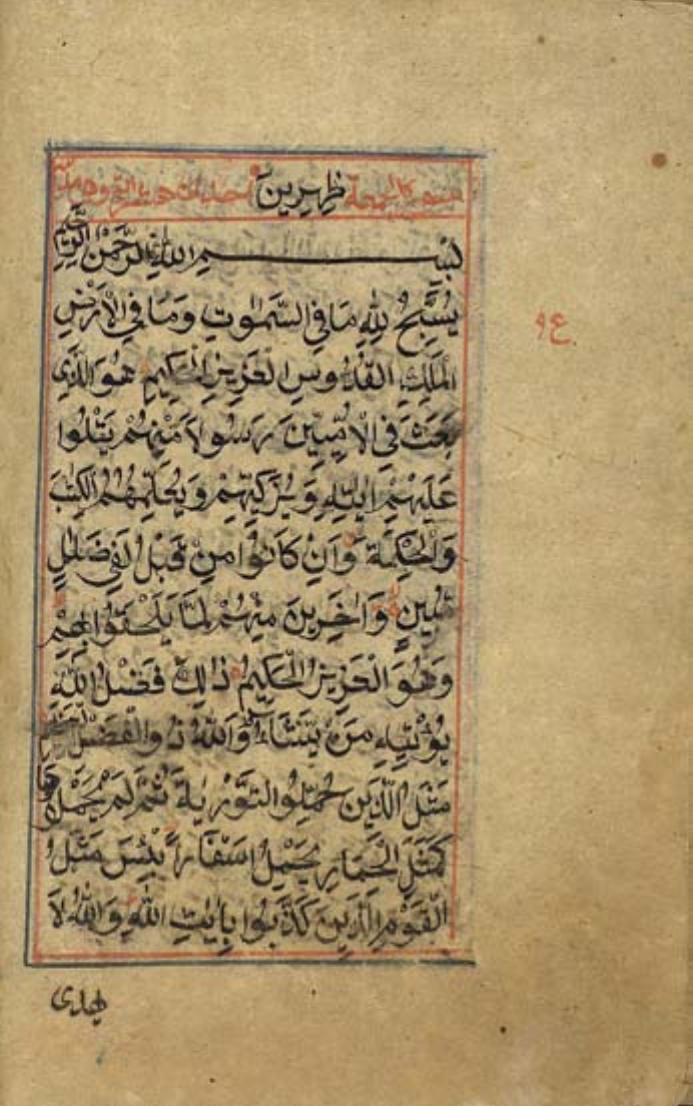 سورة الجمعة ظهرين احدى
بســـــم الله الرحمن الرحيم
يُسَبِّحُ لِلّٰهِ مَا فِي السَّمٰوٰتِ وَمَا فِي الْاَرْضِ
الْمَلِكِ الْقُدُّوسِ الْعَزِيزِ الْحَكِيمِ هُوَ الَّذِي
بَعَثَ فِي الْاُمِّيّٖنَ رَسُولًا مِنْهُمْ يَتْلُوا
عَلَيْهِمْ اٰيٰتِهٖ وَيُزَكِّيهِمْ وَيُعَلِّمُهُمُ الْكِتٰبَ
وَالْحِكْمَةَ وَاِنْ كَانُوا مِنْ قَبْلُ لَفِي ضَلٰلٍ
مُبِينٍ وَاٰخَرِينَ مِنْهُمْ لَمَّا يَلْحَقُوا بِهِمْ
وَهُوَ الْعَزِيزُ الْحَكِيمُ ذٰلِكَ فَضْلُ اللّٰهِ
يُؤْتِيهِ مَنْ يَشَاءُ وَاللّٰهُ ذُو الْفَضْلِ الْعَظِيمِ
مَثَلُ الَّذِينَ حُمِّلُوا التَّوْرٰيةَ ثُمَّ لَمْ يَحْمِلُوهَا
كَمَثَلِ الْحِمَارِ يَحْمِلُ اَسْفَارًا بِئْسَ مَثَلُ
الْقَوْمِ الَّذِينَ كَذَّبُوا بِاٰيٰتِ اللّٰهِ وَاللّٰهُ لَا
يهدى
ع